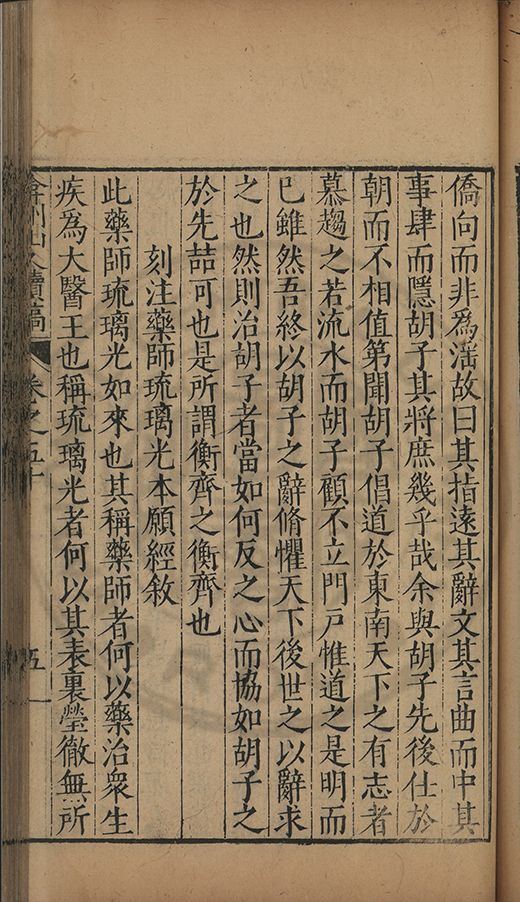 僑向而非爲滛故曰其指遠其辭文其言曲而中其
事肆而隱胡子其將庶幾乎哉余與胡子先後仕於
朝而不相值第聞胡子倡道於東南天下之有志者
慕趨之若流水而胡子顧不立門戸惟道之是明而
已雖然吾終以胡子之辭脩懼天下後世之以辭求
之也然則治胡子者當如何反之心而協如胡子之
於先喆可也是所謂衡齊之衡齊也
刻注藥師琉璃光本願經敘
此藥師琉璃光如來也其稱藥師者何以藥治衆生
疾為大醫王也稱琉璃光者何以其表裏瑩徹無所
弇州山人續稿 卷之五十 五